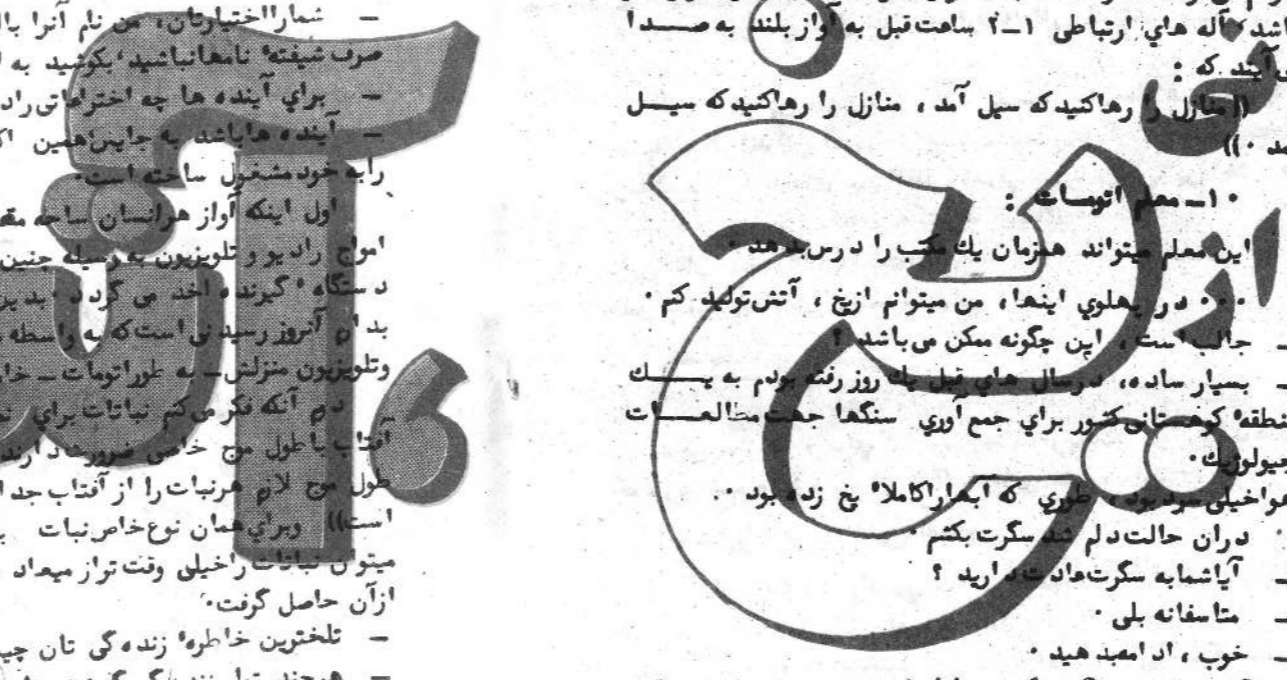 باشد آله هاي ارتباطی ۱-۲ ساعت قبل به آواز بلند به صدا
آیند که :
((منازل را رهاکنید که سیل آمد ، منازل را رهاکنید که سیل
مد ۰))
۱۰- معلم اتومات :
این معلم میتواند همزمان یك مکتب را درس بدهد ۰
۰۰۰ در پهلوي اینها، من میتوانم ازیخ ، آتش تولید کنم ۰
ـ جالب است ، این چگونه ممکن می باشد ؟
ـ بسیار ساده، درسال هاي قبل یك روز رفته بودم به یك
منطقهٔ کوهستانی کشور براي جمع آوري سنگها جهت مطالعات
جیولوژیك ۰
هوا خیلی سرد بود ، طوري که آبها را کاملاً یخ زده بود ۰
دران حالت دلم شد سگرت بکشم ۰
ـ آیا شما به سگرت عادت دارید ؟
ـ متاسفانه بلی ۰
ـ خوب ، ادامه بدهید ۰
از
یخ
آتش
ـ شما را اختیارتان، من نام آنرا
صرف شیفتهٔ نامها نباشید، بکوشید به
ـ براي آینده ها چه اختراعاتی را
ـ آینده ها باشد به جایس، همین
را به خود مشغول ساخته است ۰
اول اینکه آواز هر انسان ساحه
امواج رادیو و تلویزیون به وسیله چنین
دستگاه گیرنده اخذ می گردد ۰
آنروز رسیدنی است که به واسطه
وتلویزیون منزلش ـ به طور اتومات ـ
آنکه فکر می کنم نباتات براي
آفتاب با طول موج خاص ضرورت دارند
طول موج لازم هر نبات را از آفتاب
است)) وبراي همان نوع خاص نبات
میتوان نباتات را خیلی وقت تر از میعاد
ازآن حاصل گرفت ۰
ـ تلخترین خاطرهٔ زنده گی تان